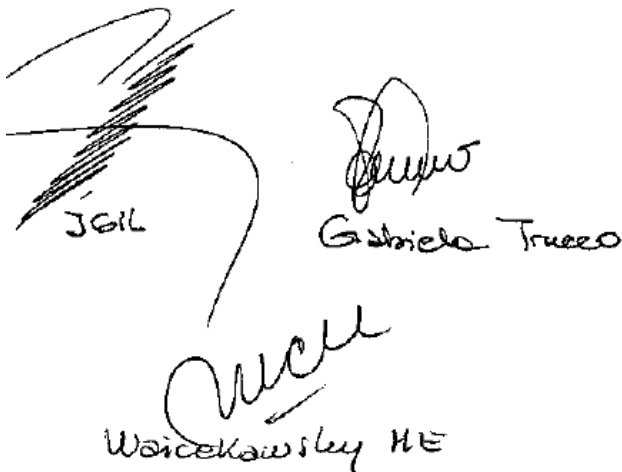 JGIL
Gabriela Trucco
Woicekowsky ME